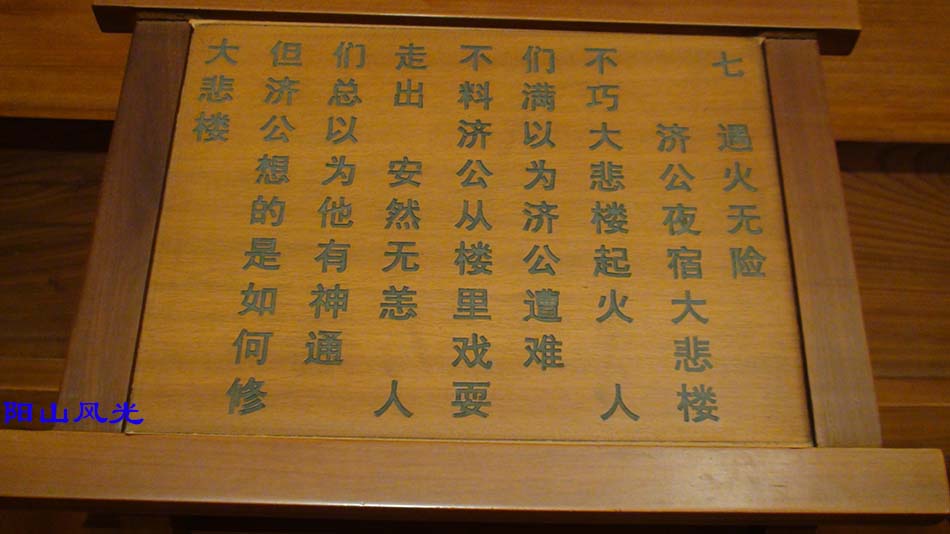 七 遇火无险
济公夜宿大悲楼
不巧大悲楼起火 人
们满以为济公遭难
不料济公从楼里戏耍
走出 安然无恙 人
们总以为他有神通
但济公想的是如何修
大悲楼
阳山风光